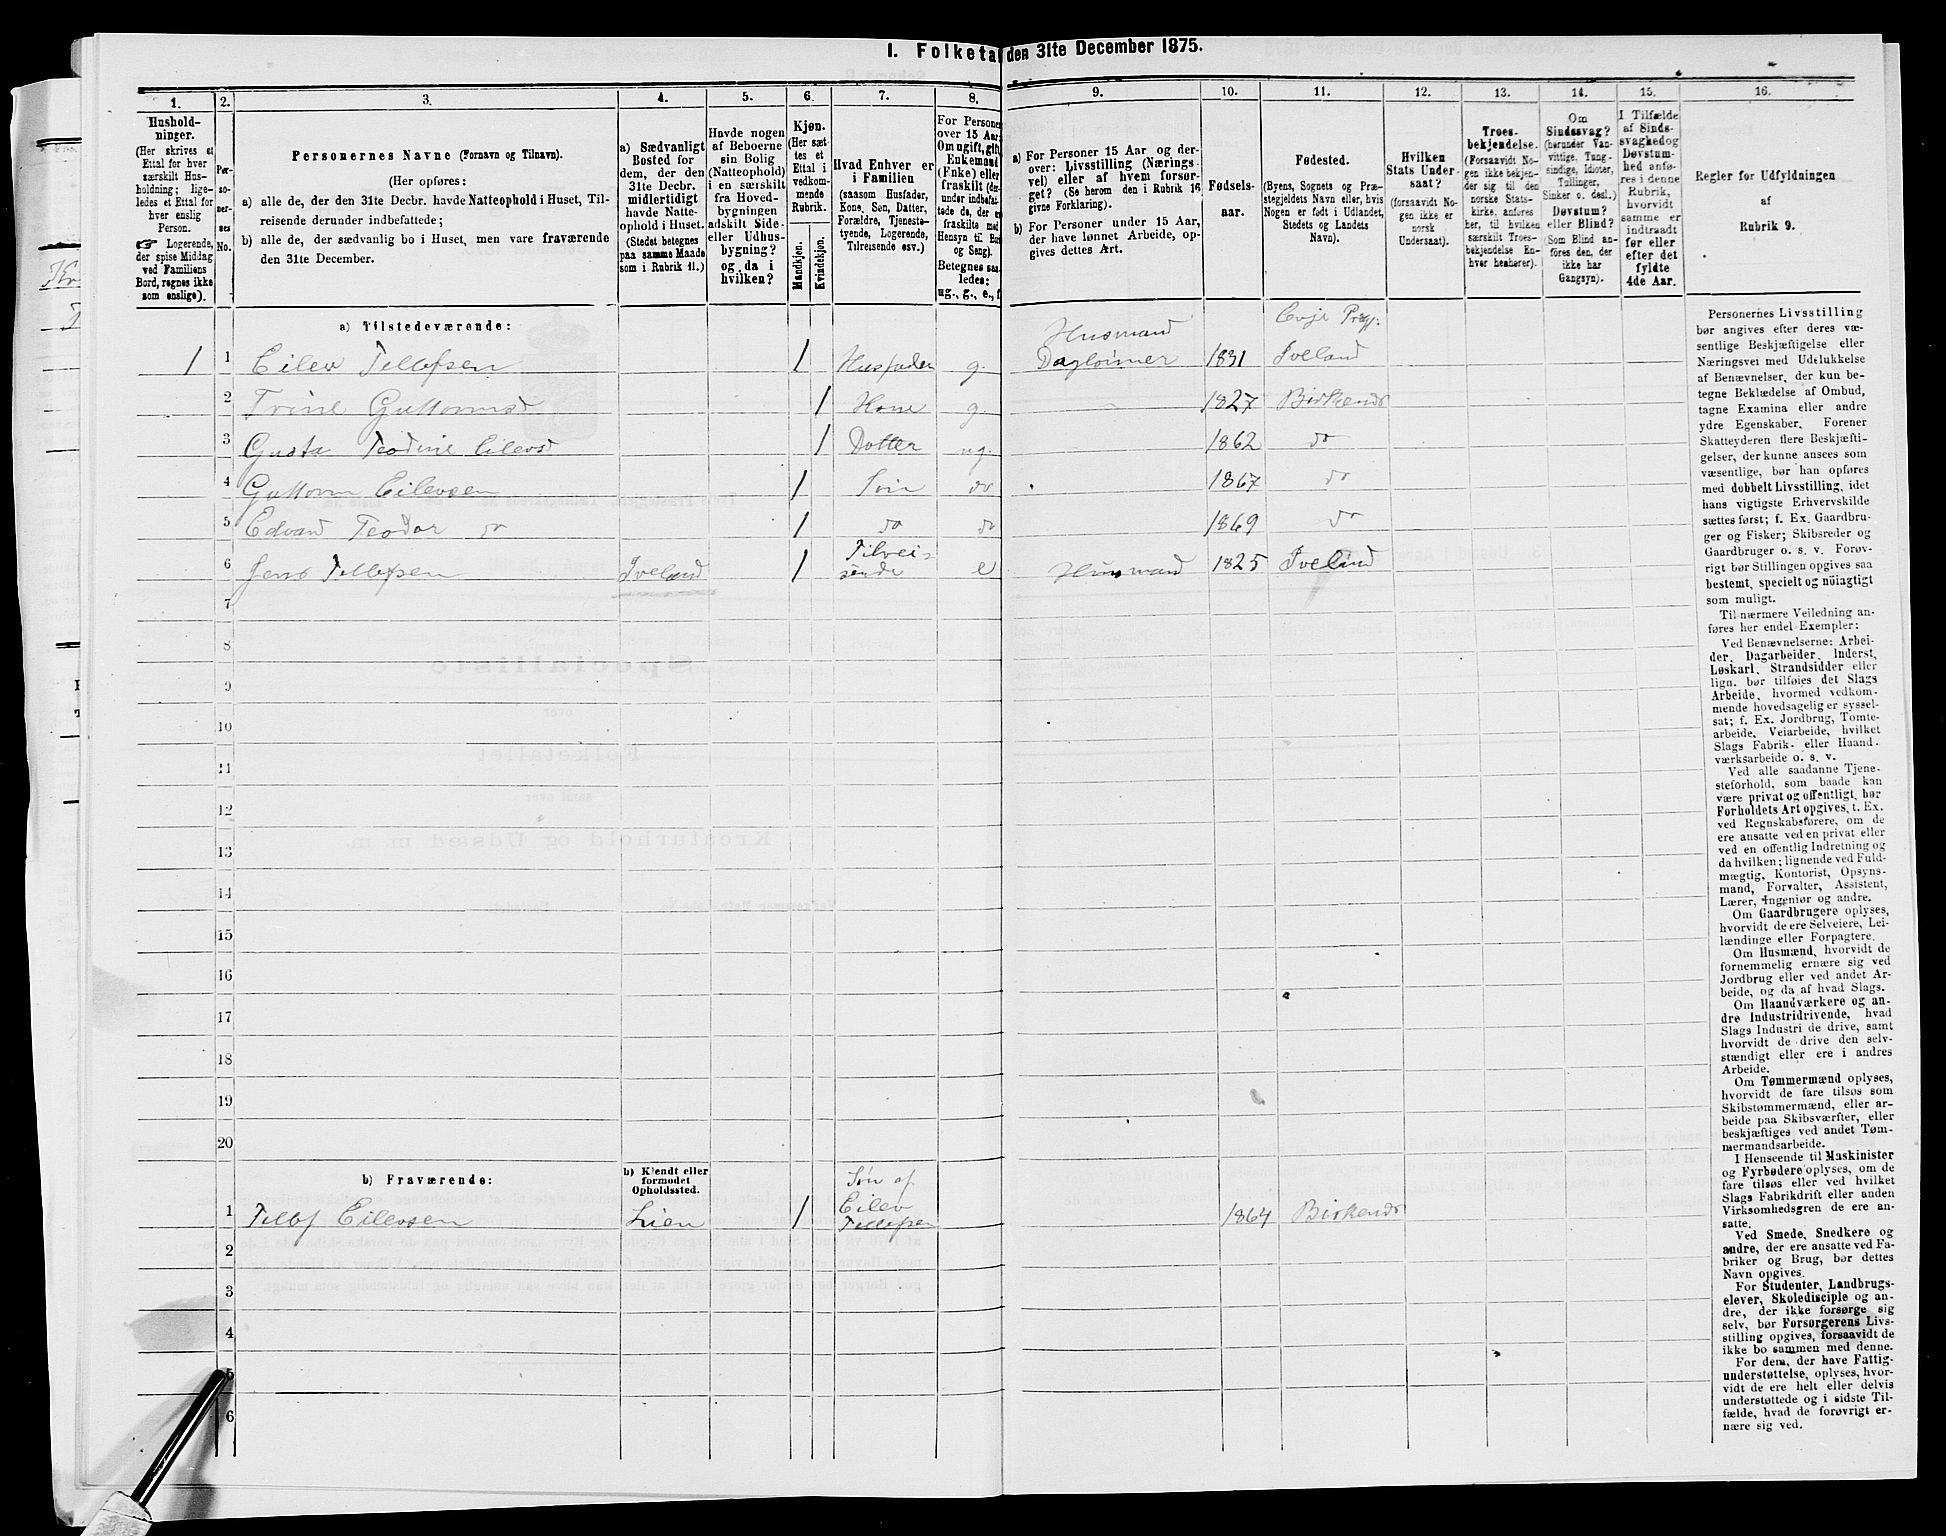 I. Folketal den 31te December 1875.
1. 2. 3. 4. 5. 6. 7. 8. 9. 10. 11. 12. 13. 14. 15. 16.
Hushold-
ninger.
(Her skrives et
Ettal for hver
særskilt Hus-
holdning; lige-
ledes et Ettal for
hver enslig
Person.
☞ Logerende,
der spise Middag
ved Familiens
Bord, regnes ikke
som enslige).
Per-
so-
ner-
nes
No.
Personernes Navne (Fornavn og Tilnavn).
(Her opføres:
a) alle de, der den 31te Decbr. havde Natteophold i Huset, Til-
reisende derunder indbefattede;
b) alle de, der sædvanlig bo i Huset, men vare fraværende
den 31te December.
a) Sædvanligt
Bosted for
dem, der den
31te Decbr.
midlertidigt
havde Natte-
ophold i Huset.
(Stedet betegnes
paa samme Maade
som i Rubrik 11.)
Havde nogen
af Beboerne
sin Bolig
(Natteophold)
i en særskilt
fra Hoved-
bygningen
adskilt Side-
eller Udhus-
bygning?
og da i
hvilken?
Kjøn.
(Her sæt-
tes et
Ettal i
vedkom-
mende
Rubrik.
Mandkjøn.
Kvindekjøn.
Hvad Enhver er
i Familien
(saasom Husfader,
Kone, Søn, Datter,
Forældre, Tjeneste-
tyende, Logerende,
Tilreisende osv.)
For Persone
over 15 Aar:
Om ugift, gift,
Enkemand
(Enke) eller
fraskilt (der-
under indbefat-
tede de, der er
fraskilte med
Hensyn til Bor
og Seng).
Betegnes saa-
ledes:
ug., g., e., f.
a) For Personer 15 Aar og der-
over: Livsstilling (Nærings-
vei) eller af hvem forsør-
get? (Se herom den i Rubrik 16
givne Forklaring).
b) For Personer under 15 Aar,
der have lønnet Arbeide, op-
gives dettes Art.
Fødsels-
aar.
Fødested.
(Byens, Sognets og Præ-
stegjeldets Navn eller, hvis
Nogen er født i Udlandet,
Stedets og Landets
Navn).
Hvilken
Stats Under-
saat?
(forsaavidt No-
gen ikke er
norsk
Undersaat).
Troes-
bekjendelse.
(Forsaavidt No-
gen ikke bekjen-
der sig til den
norske Stats-
kirke, anføres
her, til hvilken
særskilt Troes-
bekjendelse En-
hver henhører).
Om
Sindssvag?
(herunder Van-
vittige, Tung-
sindige, Idioter,
Tullinger,
Sinker o. desl.)
Døvstum?
eller Blind?
(Som Blind an-
føres den, der
ikke har
Gangsyn).
I Tilfælde
af Sinds-
svaghed og
Døvstum-
hed anfø-
res i denne
Rubrik,
hvorvidt
samme er
indtraadt
før eller
efter det
fyldte
4de Aar.
Regler for Udfyldningen
af
Rubrik 9.
a) Tilstedeværende:
Evje Præg:
Husmand
1 1 Eilev Tellefsen 1 Husfader g. Dagleinner 1831 Iveland
2 Trine Guttormsd 1 Kone g. 1827 Birkends
3 Gusta Teodine Eilevsd 1 Dotter ug. 1862 do
4 Guttorm Eilevsen 1 Søn do 1867 do
5 Edvard Teodor do 1 do do 1869 do
6 Jens Tellefsen Iveland 1 Tilrei-
sende e Husmand 1825 Iveland
7
8
9
10
11
12
13
14
15
16
17
18
19
20
b) Fraværende:
b) Kjendt eller
formodet
Opholdssted.
1 Tellef Eilevsen Lien 1 Søn af
Eilev
Tellefsen 1864 Birkends
2
3
4
5
6
Personernes Livsstilling
bør angives efter deres væ-
sentlige Beskjæftigelse eller
Næringsvei med Udelukkelse
af Benævnelser, der kun be-
tegne Beklædelse af Ombud,
tagne Examina eller andre
ydre Egenskaber. Forener
Skatteyderen flere Beskjæfti-
gelser, der kunne ansees som
væsentlige, bør han opføres
med dobbelt Livsstilling, idet
hans vigtigste Erhvervskilde
sættes først; f. Ex. Gaardbru-
ger og Fisker; Skibsreder og
Gaardbruger o. s. v. Forøv-
rigt bør Stillingen opgives saa
bestemt, specielt og nøiagtigt
som muligt.
Til nærmere Veiledning an-
føres her endel Exempler:
Ved Benævnelserne: Arbei-
der, Dagarbeider, Inderst,
Løskarl, Strandsidder eller
lign. bør tilføies det Slags
Arbeide, hvormed vedkom-
mende hovedsagelig er syssel-
sat; f. Ex. Jordbrug, Tomte-
arbeide, Veiarbeide, hvilket
Slags Fabrik- eller Haand-
værksarbeide o. s. v.
Ved alle saadanne Tjene-
steforhold, som baade kan
være privat og offentligt, bør
Forholdets Art opgives, t. Ex.
ved Regnskabsførere, om de
ere ansatte ved en privat eller
ved en offentlig Indretning og
da hvilken; lignende ved Fuld-
mægtig, Kontorist, Opsyns-
mand, Forvalter, Assistent,
Lærer, Ingeniør og andre.
Om Gaardbrugere oplyses,
hvorvidt de ere Selveiere, Lei-
lændinge eller Forpagtere.
Om Husmænd, hvorvidt de
fornemmelig ernære sig ved
Jordbrug eller ved andet Ar-
beide, og da af hvad Slags.
Om Haandværkere og an-
dre Industridrivende, hvad
Slags Industri de drive, samt
hvorvidt de drive den selv-
stændigt eller ere i andres
Arbeide.
Om Tømmermænd oplyses,
hvorvidt de fare tilsøs som
Skibstømmermænd, eller ar-
beide paa Skibsværfter, eller
beskjæftiges ved andet Tøm-
mermandsarbeide.
I Henseende til Maskinister
og Fyrbødere oplyses, om de
fare tilsøs eller ved hvilket
Slags Fabrikdrift eller anden
Virksomhedsgren de ere an-
satte.
Ved Smede, Snedkere og
andre, der ere ansatte ved Fa-
briker og Brug, bør dettes
Navn opgives.
For Studenter, Landbrugs-
elever, Skoledisciple og an-
dre, der ikke forsørge sig
selv, bør Forsørgerens Livs-
stilling opgives, forsaavidt de
ikke bo sammen med denne.
For dem, der have Fattig-
understøttelse, oplyses, hvor-
vidt de ere helt eller delvis
understøttede og i sidste Til-
fælde, hvad de forøvrigt er-
nære sig ved.